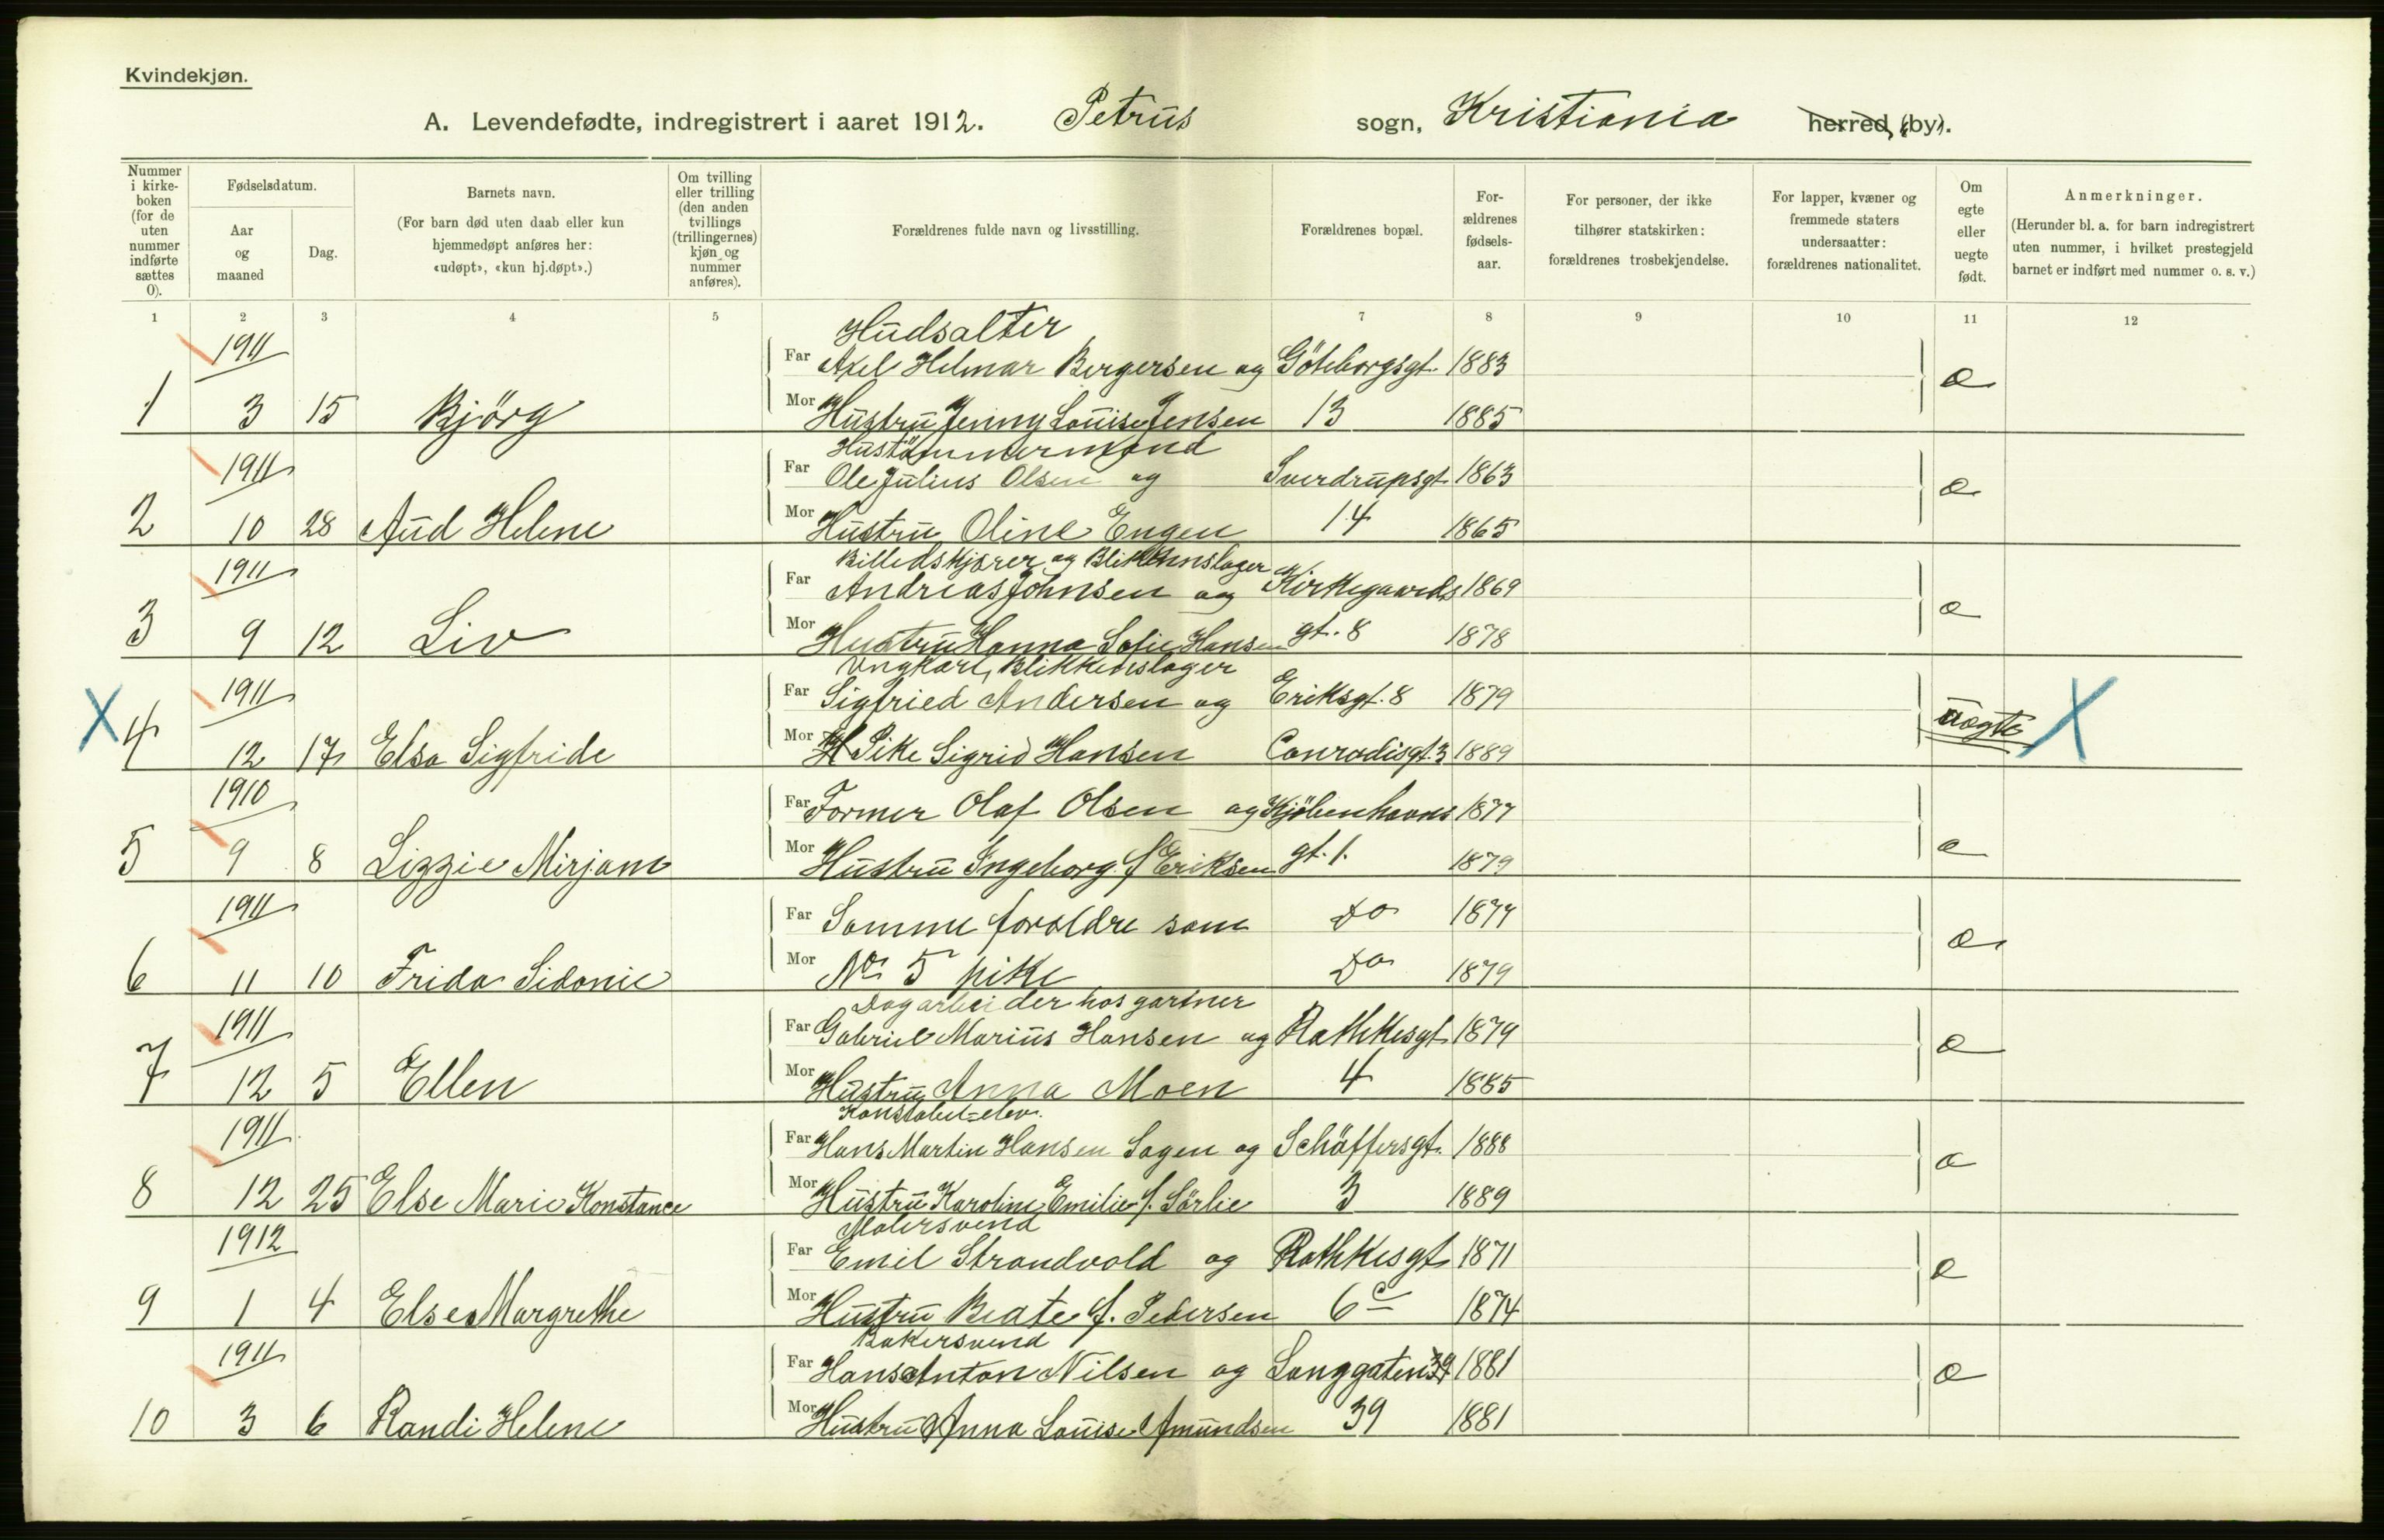 Kvindekjøn.
A. Levendefødte, indregistrert i aaret 1912. Petrus sogn, Kristiania herred, (by).
Nummer i kirke-boken (for de uten nummer indførte sættes 0).
Fødselsdatum.
Aar og maaned
Dag.
Barnets navn.
(For barn død uten daab eller kun hjemmedøpt anføres her: «udøpt», «kun hj.døpt».)
Om tvilling eller trilling (den anden tvillings (trillingernes) kjøn og nummer anføres).
Forældrenes fulde navn og livsstilling.
Forældrenes bopæl.
For-ældrenes fødsels-aar.
For personer, der ikke tilhører statskirken: forældrenes trosbekjendelse.
For lapper, kvæner og fremmede staters undersaatter: forældrenes nationalitet.
Om egte eller uegte født.
Anmerkninger.
(Herunder bl. a. for barn indregistrert uten nummer, i hvilket prestegjeld barnet er indført med nummer o. s. v.)
1 2 3 4 5 7 8 9 10 11 12
1911 Hudsalter
Far Axel Helmar Bergersen og Göteborgsgt. 1883 e
1 3 15 Björg Mor Hustru Jenny Louise Jensen 13 1885
1911 Hustömmermand
Far Ole Julius Olsen og Sverdrupsgt 1863 e
2 10 28 Aud Helene Mor Hustru Oline Engen 14 1865
1911 Billedskjærer og Blikkenslager
Far Andreas Johnsen og Kirkegaards 1869 e
3 9 12 Liv Mor Hustru Hanna Sofie Hansen gt. 8 1878
1911 Ungkarl, Blikkenslager
Far Sigfried Andersen og Eriksgt. 8 1879 uegte X
X 4 12 17 Elsa Sigfride Mor Pike Sigrid Hansen Conradisgt. 3 1889
1910 Far Former Olaf Olsen og Kjöbenhavns 1877 e
5 9 8 Lizzie Mirjam Mor Hustru Ingeborg f. Eriksen gt. 1. 1879
1911 Far Samme forældre som Do 1877 e
6 11 10 Frida Sidonie Mor No 5 pike Do 1879
1911 Dagarbeider hos gartner
Far Gabriel Marius Hansen og Rathkesgt 1879 e
7 12 5 Ellen Mor Hustru Anna Moen 4 1885
1911 Konstabel-elev.
Far Hans Martin Hansen Sagen og Schäffersgt. 1888 e
8 12 25 Else Marie Konstance Mor Hustru Karoline Emilie f. Sörlie 3 1889
1912 Malersvend
Far Emil Strandvold og Rathkesgt 1871 e
9 1 4 Else Margrethe Mor Hustru Beate f. Pedersen 6c 1874
1911 Bakersvend
Far Hans Anton Nilsen og Langgaten 39 1881 e
10 3 6 Randi Helene Mor Hustru Anna Louise Amundsen 39 1881